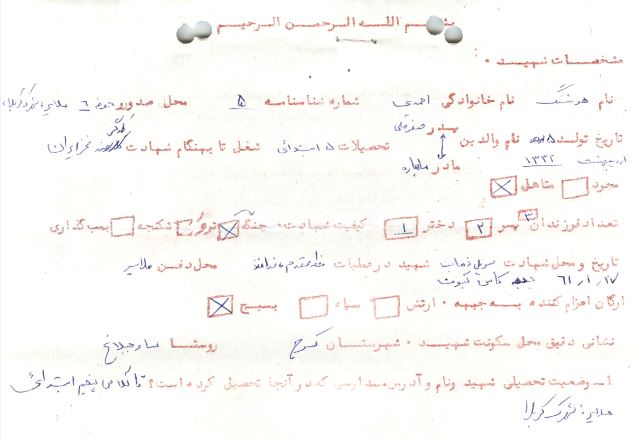 بسم الله الرحمن الرحیم
مشخصات شهید :
نام هوشنگ نام خانوادگی احمدی شماره شناسنامه ۵ محل صدور حوزه ۶ ملایر،
تاریخ تولد ۵ نام والدین پدر صفرعلی تحصیلات ۵ ابتدائی شغل تا بهنگام شهادت کارگر فخر ایران
اردیبهشت ۱۳۳۲ مادر
مجرد متاهل
تعداد فرزندان ۳ پسر ۲ دختر ۱ کیفیت شهادت جنگ ترور شکنجه بمب گذاری
تاریخ و محل شهادت سرپل ذهاب شهید در عملیات محل دفن ملایر
۶۱/۱/۱۷
ارگان اعزام کننده به جبهه ارتش سپاه بسیج
نشانی دقیق محل سکونت شهید شهرستان کرج روستا ساوجبلاغ
۱ــ وضعیت تحصیلی شهید ونام و آدرس مدارسی که در آنجا تحصیل کرده است؟ تا کلاس پنجم ابتدائی
ملایر: شهرک کربلا